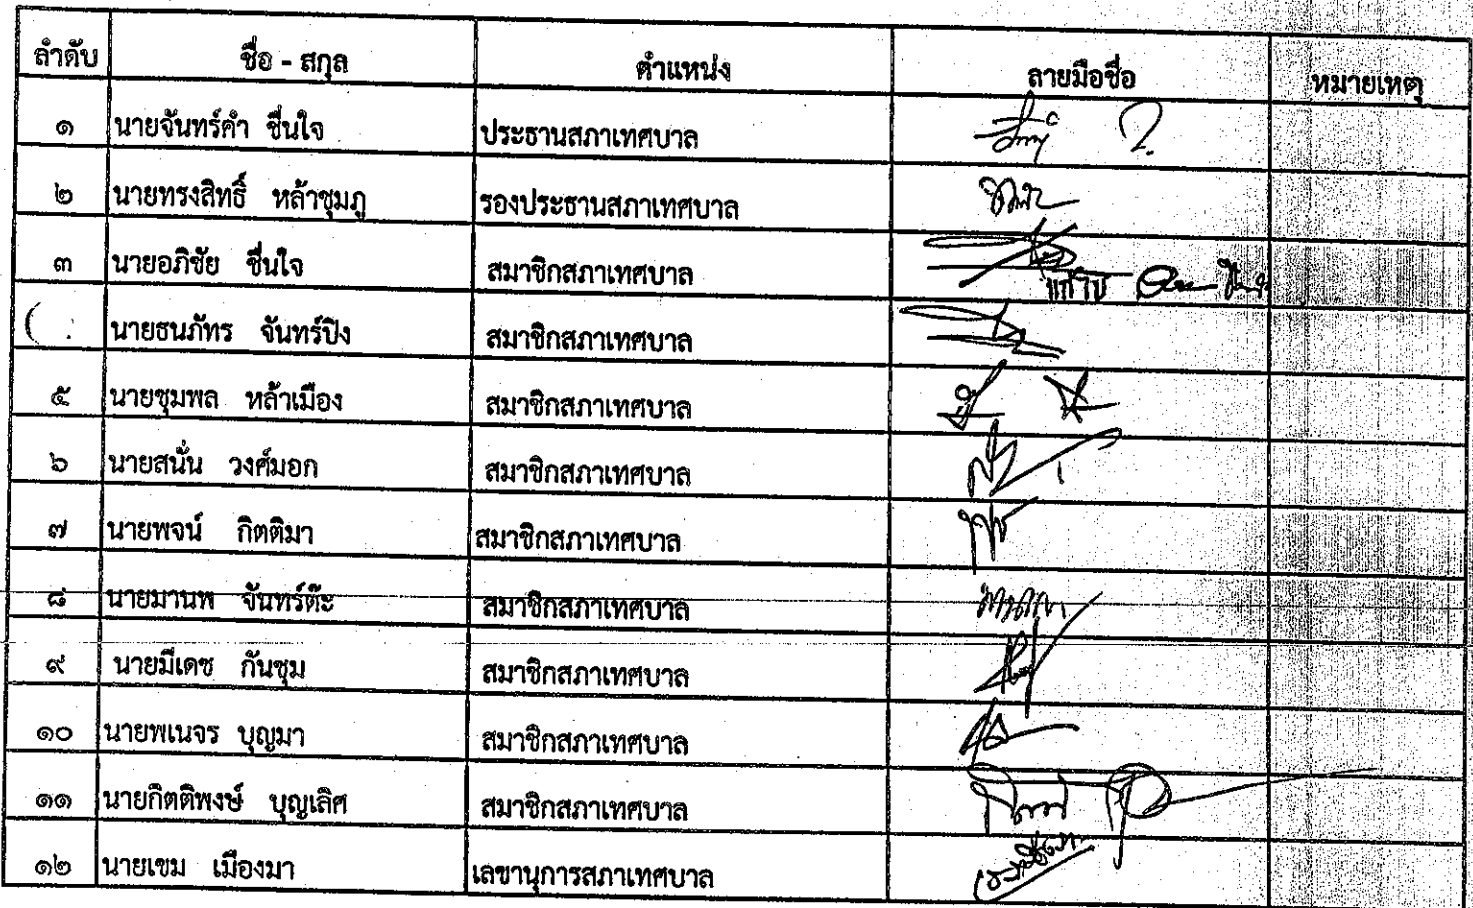 ลำดับ ชื่อ - สกุล ตำแหน่ง ลายมือชื่อ หมายเหตุ
๑ นายจันทร์คำ ชื่นใจ ประธานสภาเทศบาล
๒ นายทรงสิทธิ์ หล้าชุมภู รองประธานสภาเทศบาล
๓ นายอภิชัย ชื่นใจ สมาชิกสภาเทศบาล
นายธนภัทร จันทร์ปิง สมาชิกสภาเทศบาล
๕ นายชุมพล หล้าเมือง สมาชิกสภาเทศบาล
๖ นายสนั่น วงศ์มอก สมาชิกสภาเทศบาล
๗ นายพจน์ กิตติมา สมาชิกสภาเทศบาล
๘ นายมานพ จันทร์ต๊ะ สมาชิกสภาเทศบาล
๙ นายมีเดช กันชุม สมาชิกสภาเทศบาล
๑๐ นายพเนจร บุญมา สมาชิกสภาเทศบาล
๑๑ นายกิตติพงษ์ บุญเลิศ สมาชิกสภาเทศบาล
๑๒ นายเขม เมืองมา เลขานุการสภาเทศบาล